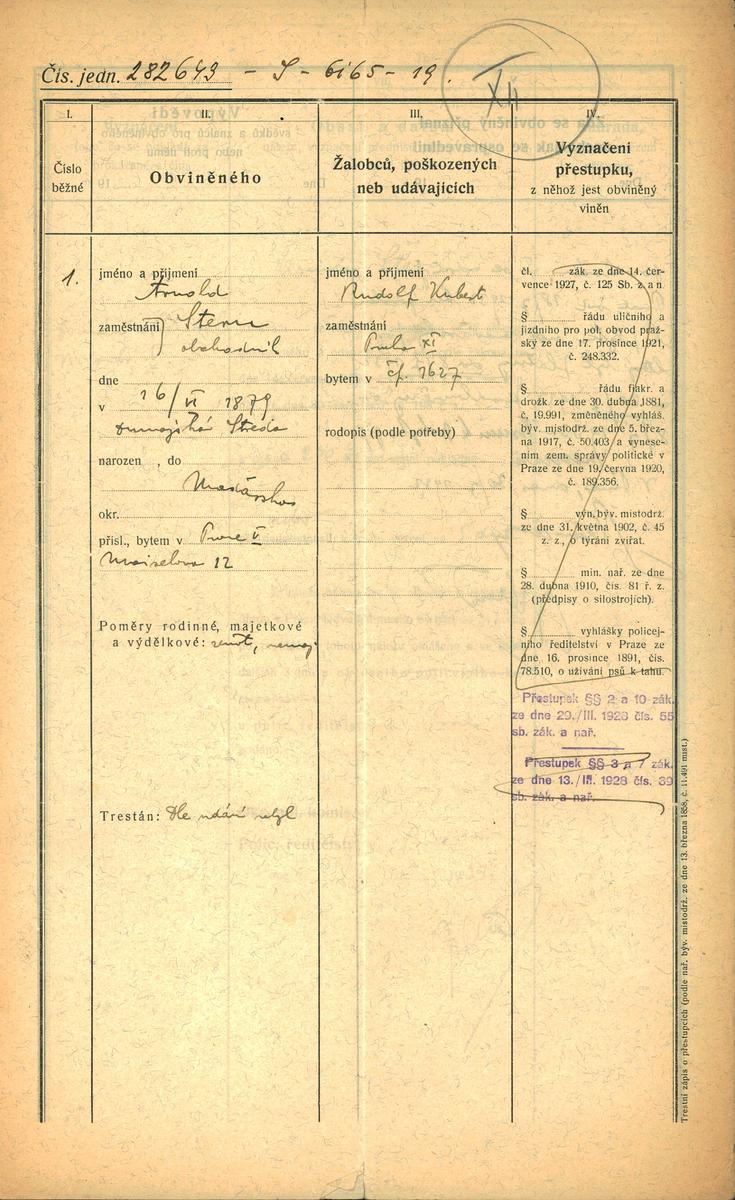 Čís. jedn. 282643 - S - 6165 - 19.
XII
I.
Číslo
běžné
II.
Obviněného
III.
Žalobců, poškozených
neb udávajících
IV.
Vyznačení
přestupku,
z něhož jest obviněný
viněn
1.
jméno a příjmení
Arnold
zaměstnání Stern
obchodník
dne
16/VI 1879
v
Dunajská Středa
narozen , do
Maďarsko
okr.
přísl., bytem v Praze V
Maiselova 12
Poměry rodinné, majetkové
a výdělkové: ženat, nemaj.
Trestán: Dle udání
jméno a příjmení
Rudolf Kubert
zaměstnání
Praha XI
bytem v čp. 1627
rodopis (podle potřeby)
čl. zák. ze dne 14. čer-
vence 1927, č. 125 Sb. z. a n.
§ řádu uličního a
jízdního pro pol. obvod praž-
ský ze dne 17. prosince 1921,
č. 248.332.
§ řádu fiakr. a
drožk. ze dne 30. dubna 1881,
č. 19.991, změněného vyhláš.
býv. místodrž. ze dne 5. břez-
na 1917, č. 50.403 a vynese-
ním zem. správy politické v
Praze ze dne 19. června 1920,
č. 189.356.
§ výn. býv. místodrž.
ze dne 31. května 1902, č. 45
z. z., o týrání zvířat.
§ min. nař. ze dne
28. dubna 1910, čís. 81 ř. z.
(předpisy o silostrojích).
§ vyhlášky policej-
ního ředitelství v Praze ze
dne 16. prosince 1891, čís.
78.510, o užívání psů k tahu.
Přestupek §§ 2 a 10 zák.
ze dne 29./III. 1928 čís. 55
sb. zák. a nař.
Přestupek §§ 3 a 7 zák.
ze dne 13./III. 1928 čís. 39
sb. zák. a nař.
Trestní zápis o přestupcích (podle nař. býv. místodrž. ze dne 13. března 1858, č. 11.491 must.)